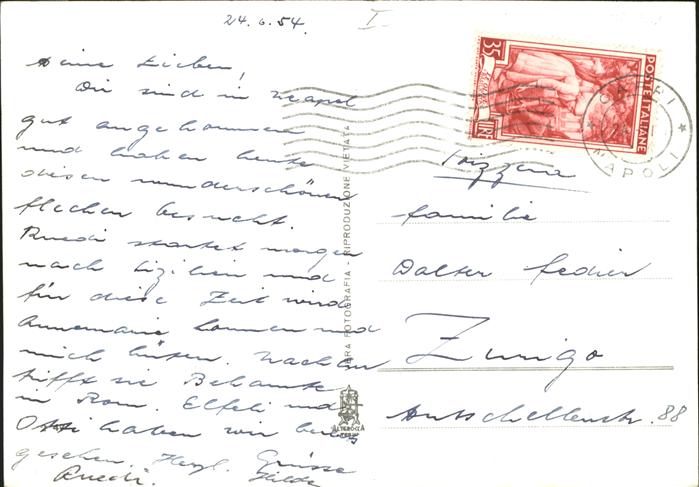 24.6.54.
I
Meine Lieben!
Wir sind in Neapel
gut angekommen
und haben heute
diesen wunderschönen
flecken besucht.
Ruedi startet morgen
nach Sizilien und
für diese Zeit wird
Annemarie kommen und
mich hüten. Nachher
trifft sie Bekannte
in Rom. Elfeli und
haben wir bereits
gesehen. Herzl. Grüsse
Ruedi. Hilde
VERA FOTOGRAFIA - RIPRODUZIONE VIETATA
ALTEROCCA
TERNI
35
LIRE
POSTE ITALIANE
CAPRI
NAPOLI
Svizzera
Familie
Walter
Zurigo
Mutschellenstr. 88